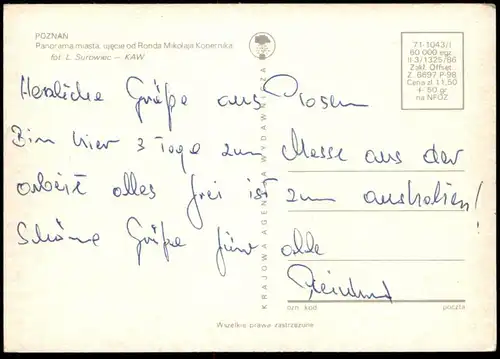 POZNAŃ
Panorama miasta, ujęcie od Ronda Mikołaja Kopernika
fot. L. Surowiec — KAW
71-1043/I
60 000 egz.
II 3/1325/86
Zakł. Offset.
Z. 6697 P-98
Cena zł 11,50
+ 50 gr
na NFOZ
KRAJOWA AGENCJA WYDAWNICZA
Herzliche Grüße aus Posen
Bin hier 3 Tage zum Messe aus der
arbeit alles frei ist zum aushalten!
Schöne Grüße für alle
ozn. kod
poczta
Wszelkie prawa zastrzeżone